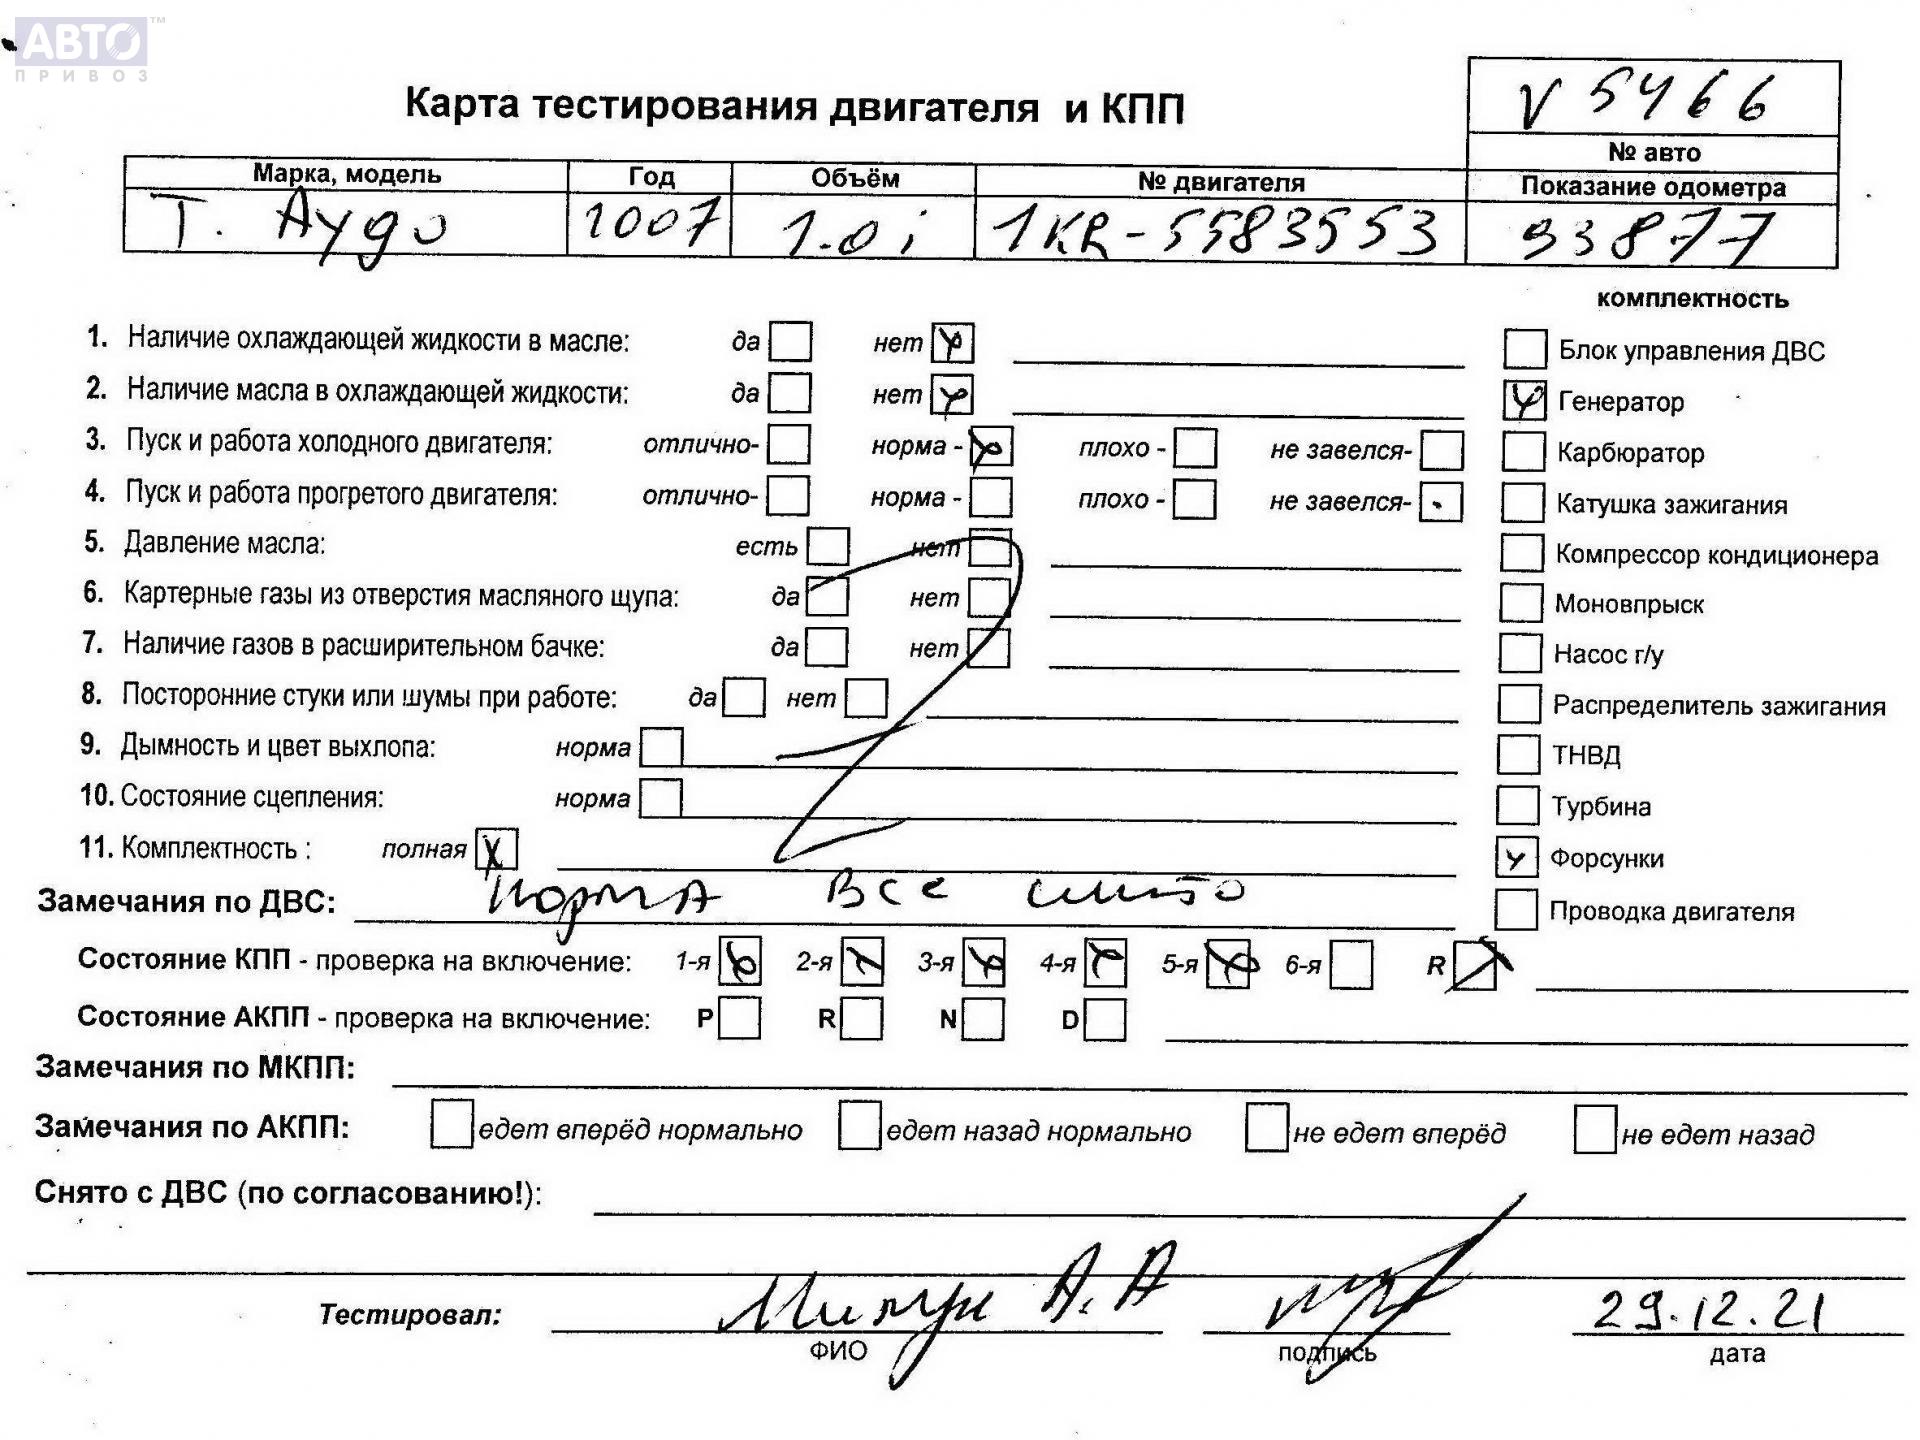 АВТО™
ПРИВОЗ
Карта тестирования двигателя и КПП
V 5466
№ авто
Марка, модель Год Объём № двигателя Показание одометра
T. Aygo 2007 1.0i 1KR-5583553 93877
комплектность
1. Наличие охлаждающей жидкости в масле: да нет
Блок управления ДВС
2. Наличие масла в охлаждающей жидкости: да нет
Генератор
3. Пуск и работа холодного двигателя: отлично- норма - плохо - не завелся-
Карбюратор
4. Пуск и работа прогретого двигателя: отлично- норма - плохо - не завелся-
Катушка зажигания
5. Давление масла: есть нет
Компрессор кондиционера
6. Картерные газы из отверстия масляного щупа: да нет
Моновпрыск
7. Наличие газов в расширительном бачке: да нет
Насос г/у
8. Посторонние стуки или шумы при работе: да нет
Распределитель зажигания
9. Дымность и цвет выхлопа: норма
ТНВД
10. Состояние сцепления: норма
Турбина
11. Комплектность : полная
Форсунки
Замечания по ДВС: норма все
Проводка двигателя
Состояние КПП - проверка на включение: 1-я 2-я 3-я 4-я 5-я 6-я R
Состояние АКПП - проверка на включение: P R N D
Замечания по МКПП:
Замечания по АКПП: едет вперёд нормально едет назад нормально не едет вперёд не едет назад
Снято с ДВС (по согласованию!):
Тестировал: А.А 29.12.21
ФИО подпись дата